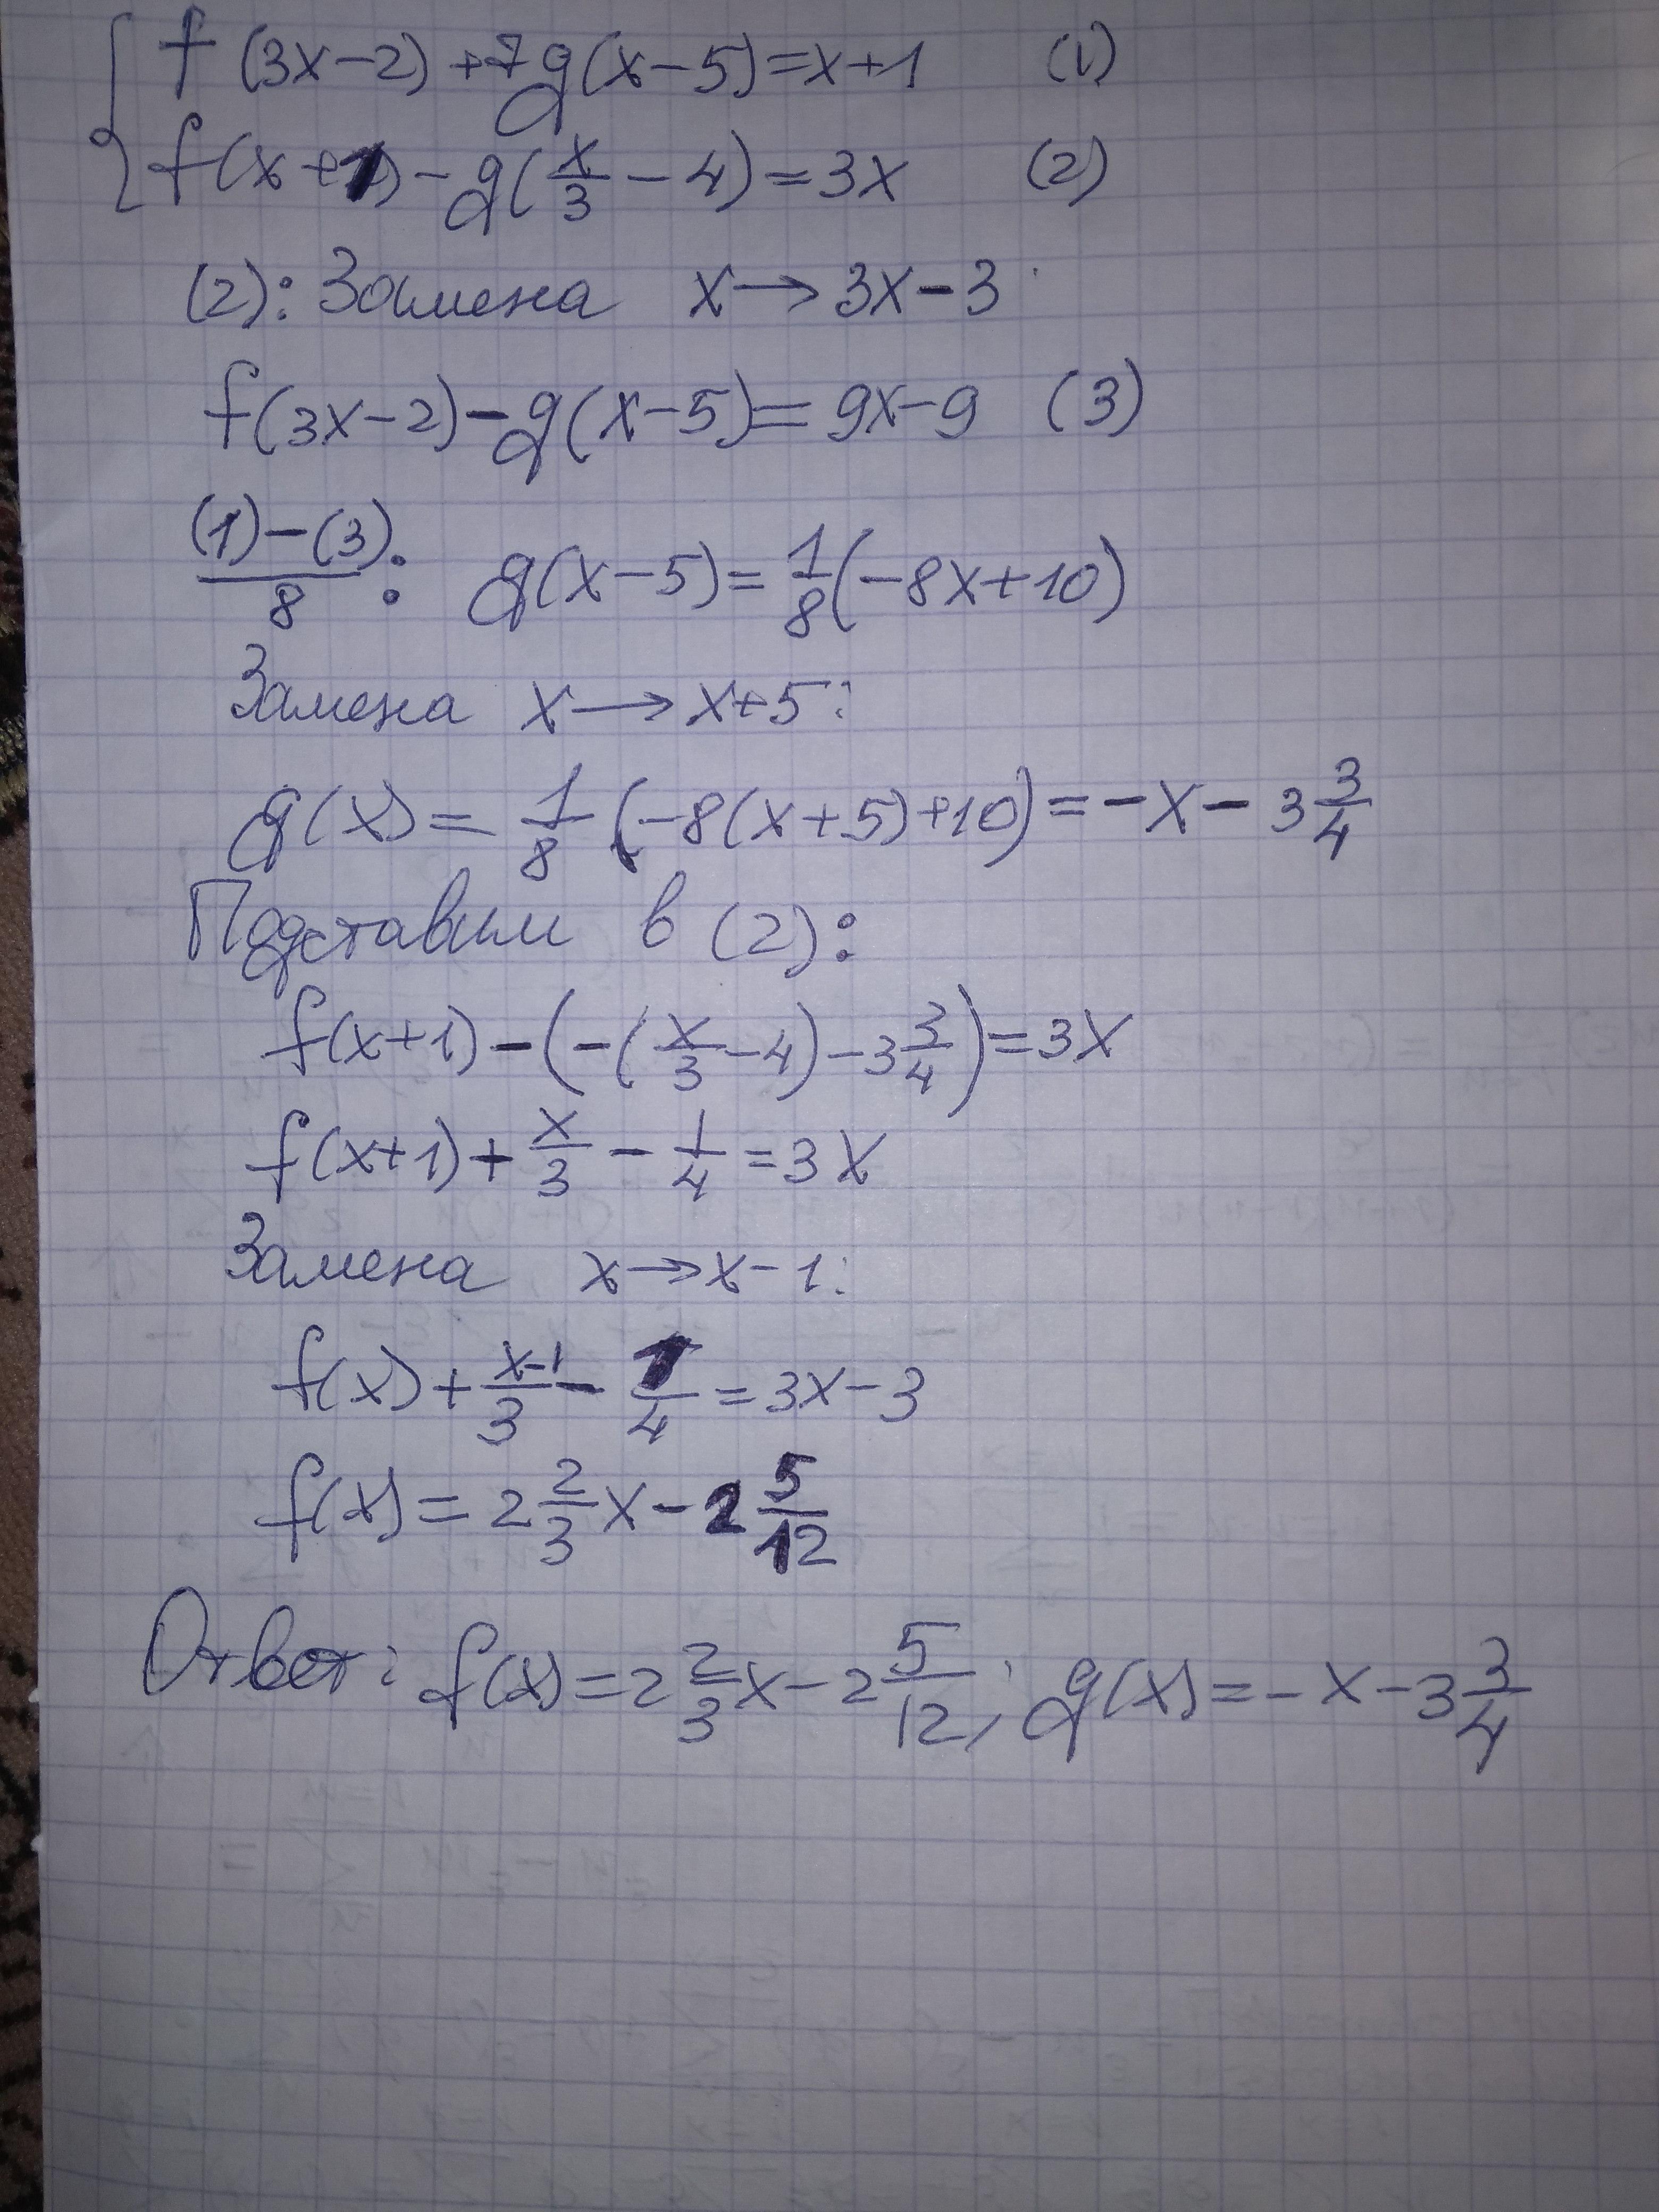 f(3x-2)+7g(x-5)=x+1 (1)
f(x+1)-g(x/3-4)=3x (2)
(2): Замена x→3x-3
f(3x-2)-g(x-5)=9x-9 (3)
(1)-(3)/8: g(x-5)=1/8(-8x+10)
Замена x→x+5:
g(x)=1/8(-8(x+5)+10)=-x-3 3/4
Подставим в (2):
f(x+1)-(-(x/3-4)-3 3/4)=3x
f(x+1)+x/3-1/4=3x
Замена x→x-1:
f(x)+x-1/3-1/4=3x-3
f(x)=2 2/3x-2 5/12
Ответ: f(x)=2 2/3x-2 5/12; g(x)=-x-3 3/4